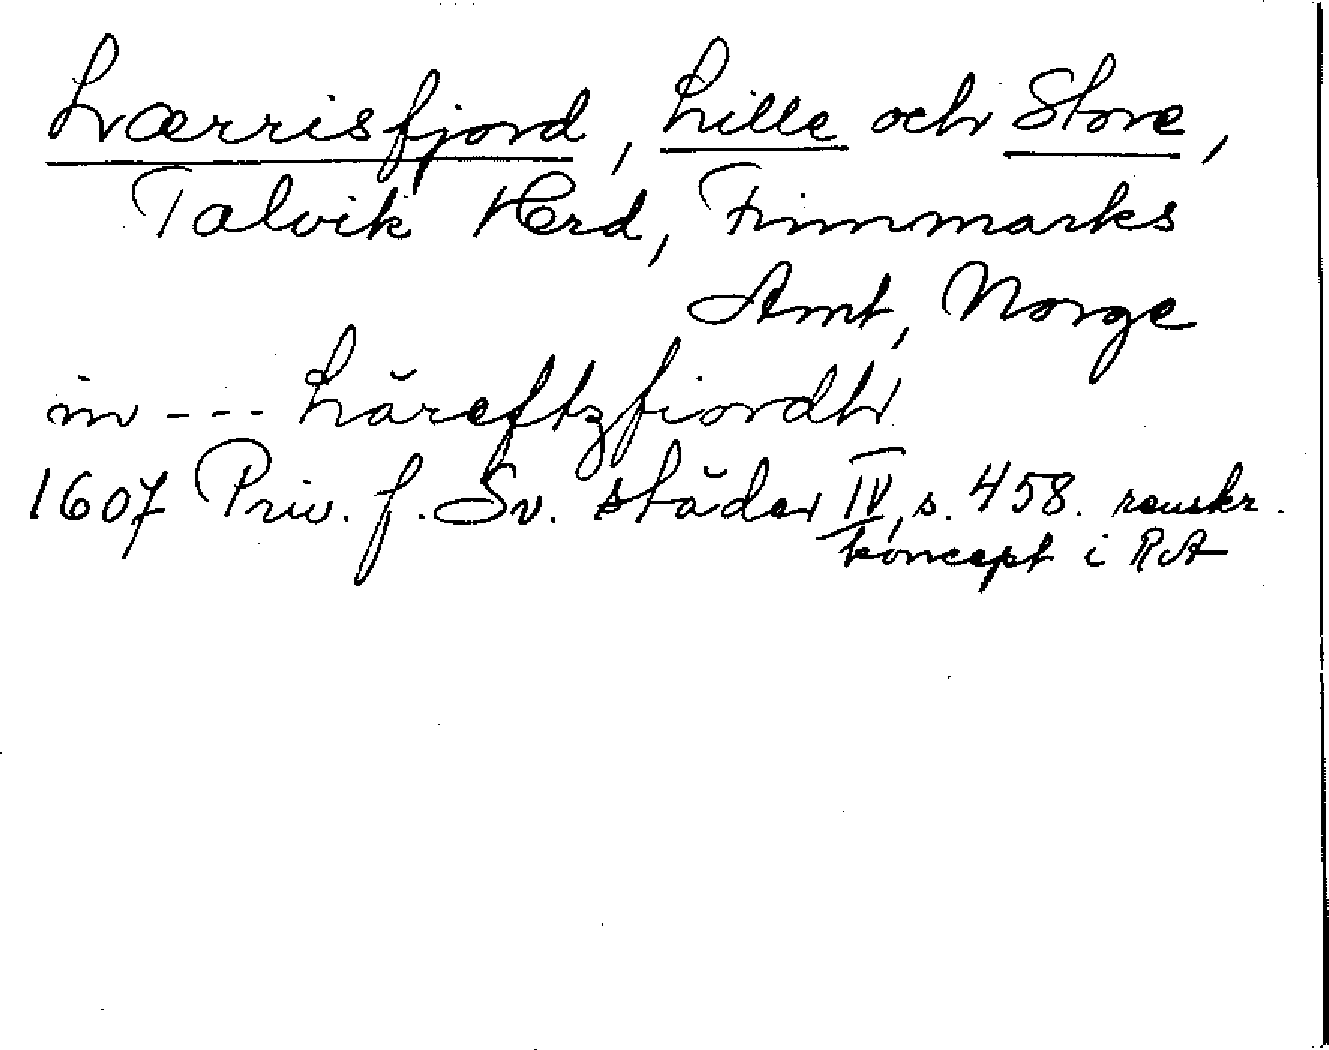 Lærrisfjord, Lille och Store,
Talvik Herd, Finnmarks
Amt, Norge
in --- Läreftzfiordh
1607 Priv. f. Sv. städer IV, s. 458. renskr.
koncept i RA